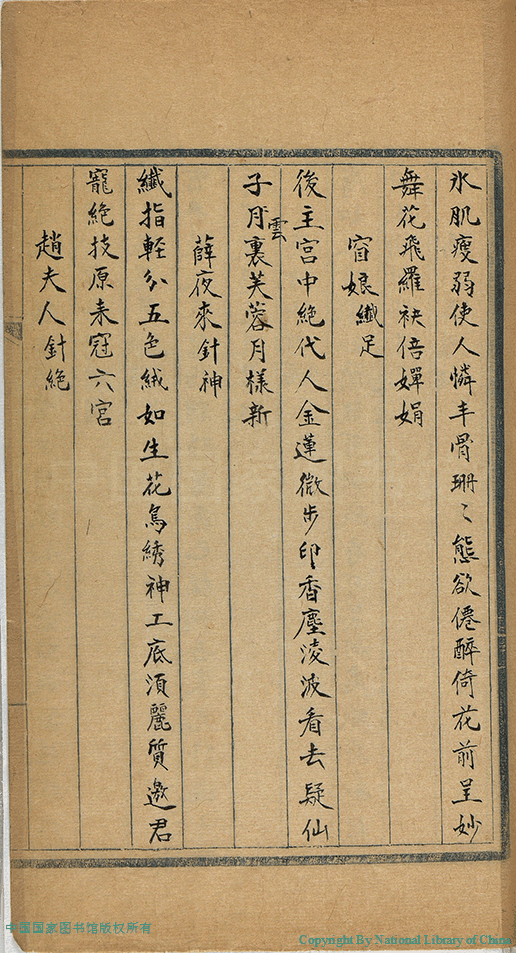 氷肌瘦弱使人憐丰骨珊〻態欲僊醉倚花前呈妙
舞花飛羅袂倍嬋娟
窅娘纖足
後主宮中絶代人金蓮微步印香塵淩波看去疑仙
子月雲裏芙蓉月樣新
薛夜來針神
纖指輕分五色絨如生花鳥綉神工底須麗質邀君
寵絶技原来冠六宮
趙夫人針絶
中国国家图书馆版权所有
Copyright By National Library of China